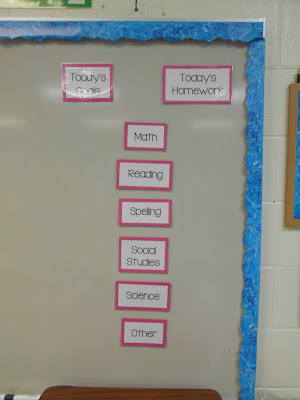 Today's
Goals
Today's
Homework
Math
Reading
Spelling
Social
Studies
Science
Other